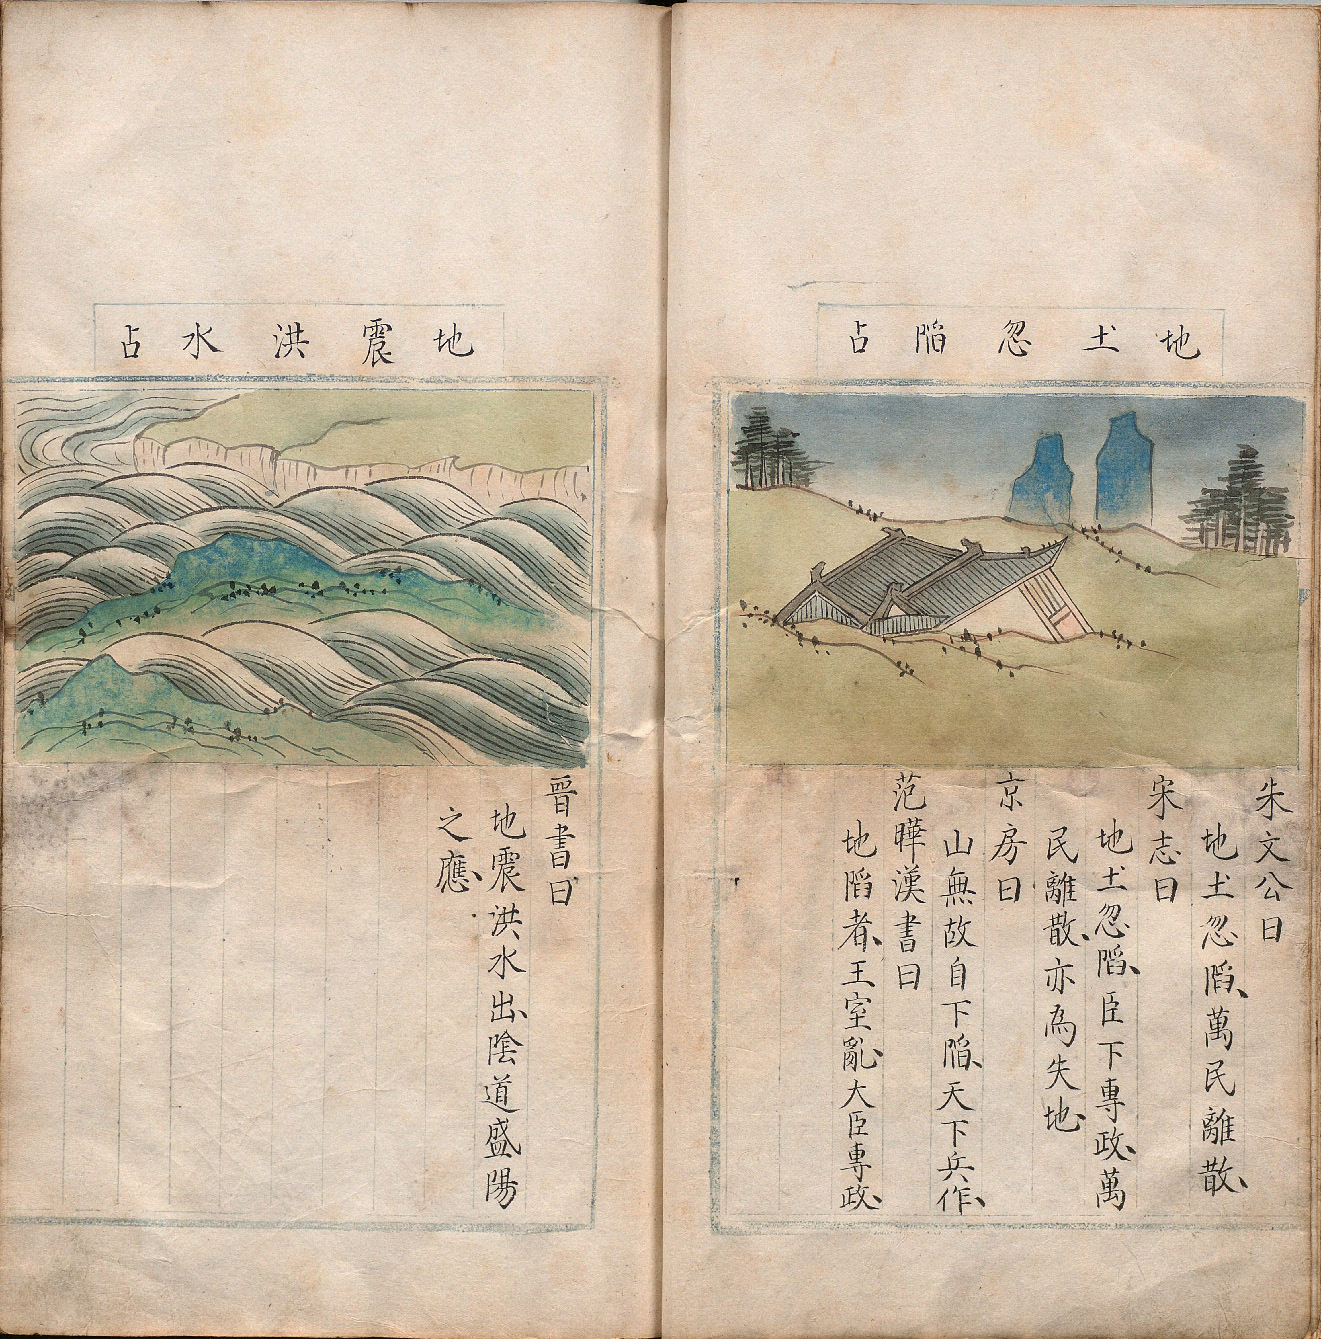 地土忽陷占
朱文公曰
地土忽陷、萬民離散、
宋志曰
地土忽陷、臣下專政、萬
民離散、亦為失地、
京房曰
山無故自下陷、天下兵作、
范曄漢書曰
地陷者、王室亂、大臣專政、
地震洪水占
晉書曰
地震洪水出、陰道盛陽
之應、